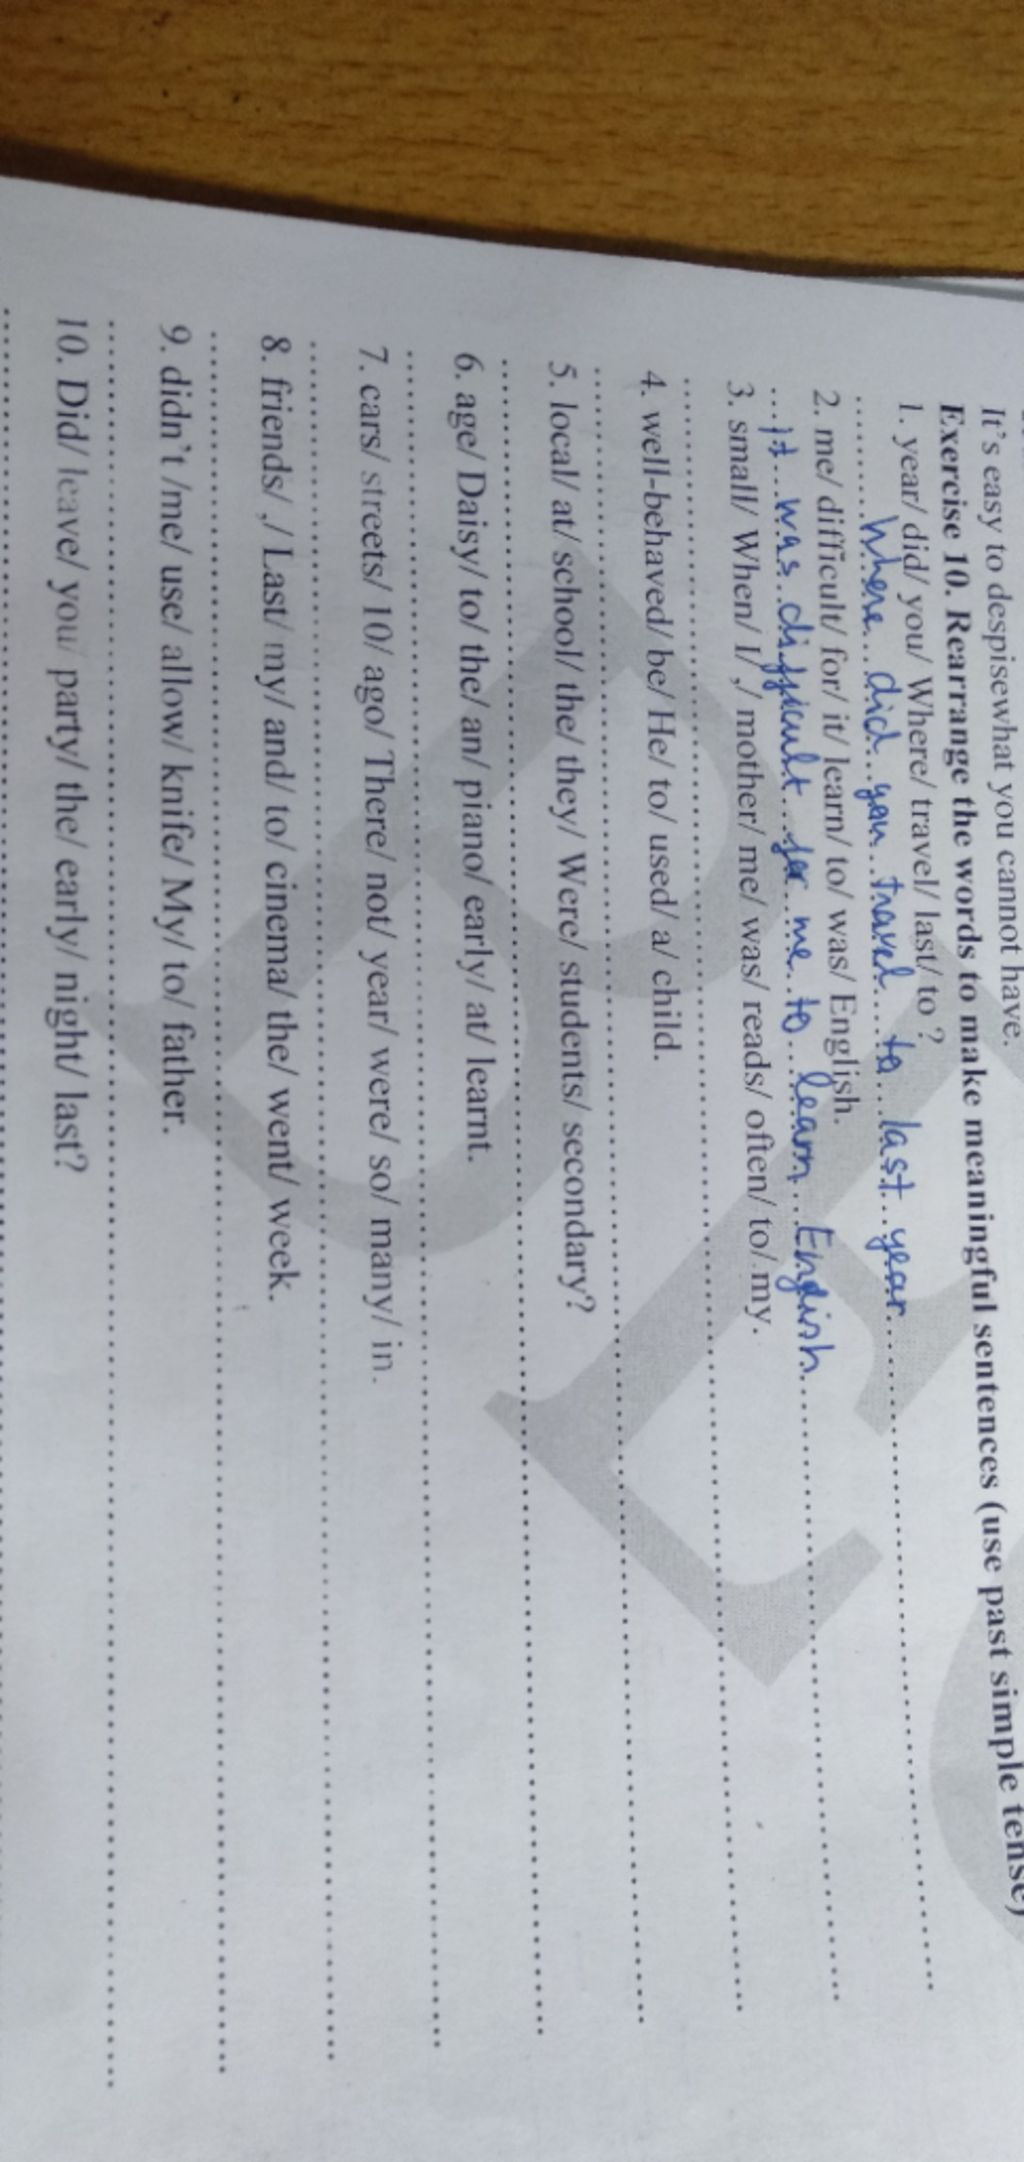 It's easy to despisewhat you cannot have.
Exercise 10. Rearrange the words to make meaningful sentences (use past simple tense)
1. year/ did/ you/ Where/ travel/ last/ to ?
Where did you travel to last year
2. me/ difficult/ for/ it/ learn/ to/ was/ English.
it was difficult for me to learn English
3. small/ When/ I/ ,/ mother/ me/ was/ reads/ often/ to/ my.
4. well-behaved/ be/ He/ to/ used/ a/ child.
5. local/ at/ school/ the/ they/ Were/ students/ secondary?
6. age/ Daisy/ to/ the/ an/ piano/ early/ at/ learnt.
7. cars/ streets/ 10/ ago/ There/ not/ year/ were/ so/ many/ in.
8. friends/ ,/ Last/ my/ and/ to/ cinema/ the/ went/ week.
9. didn't /me/ use/ allow/ knife/ My/ to/ father.
10. Did/ leave/ you/ party/ the/ early/ night/ last?